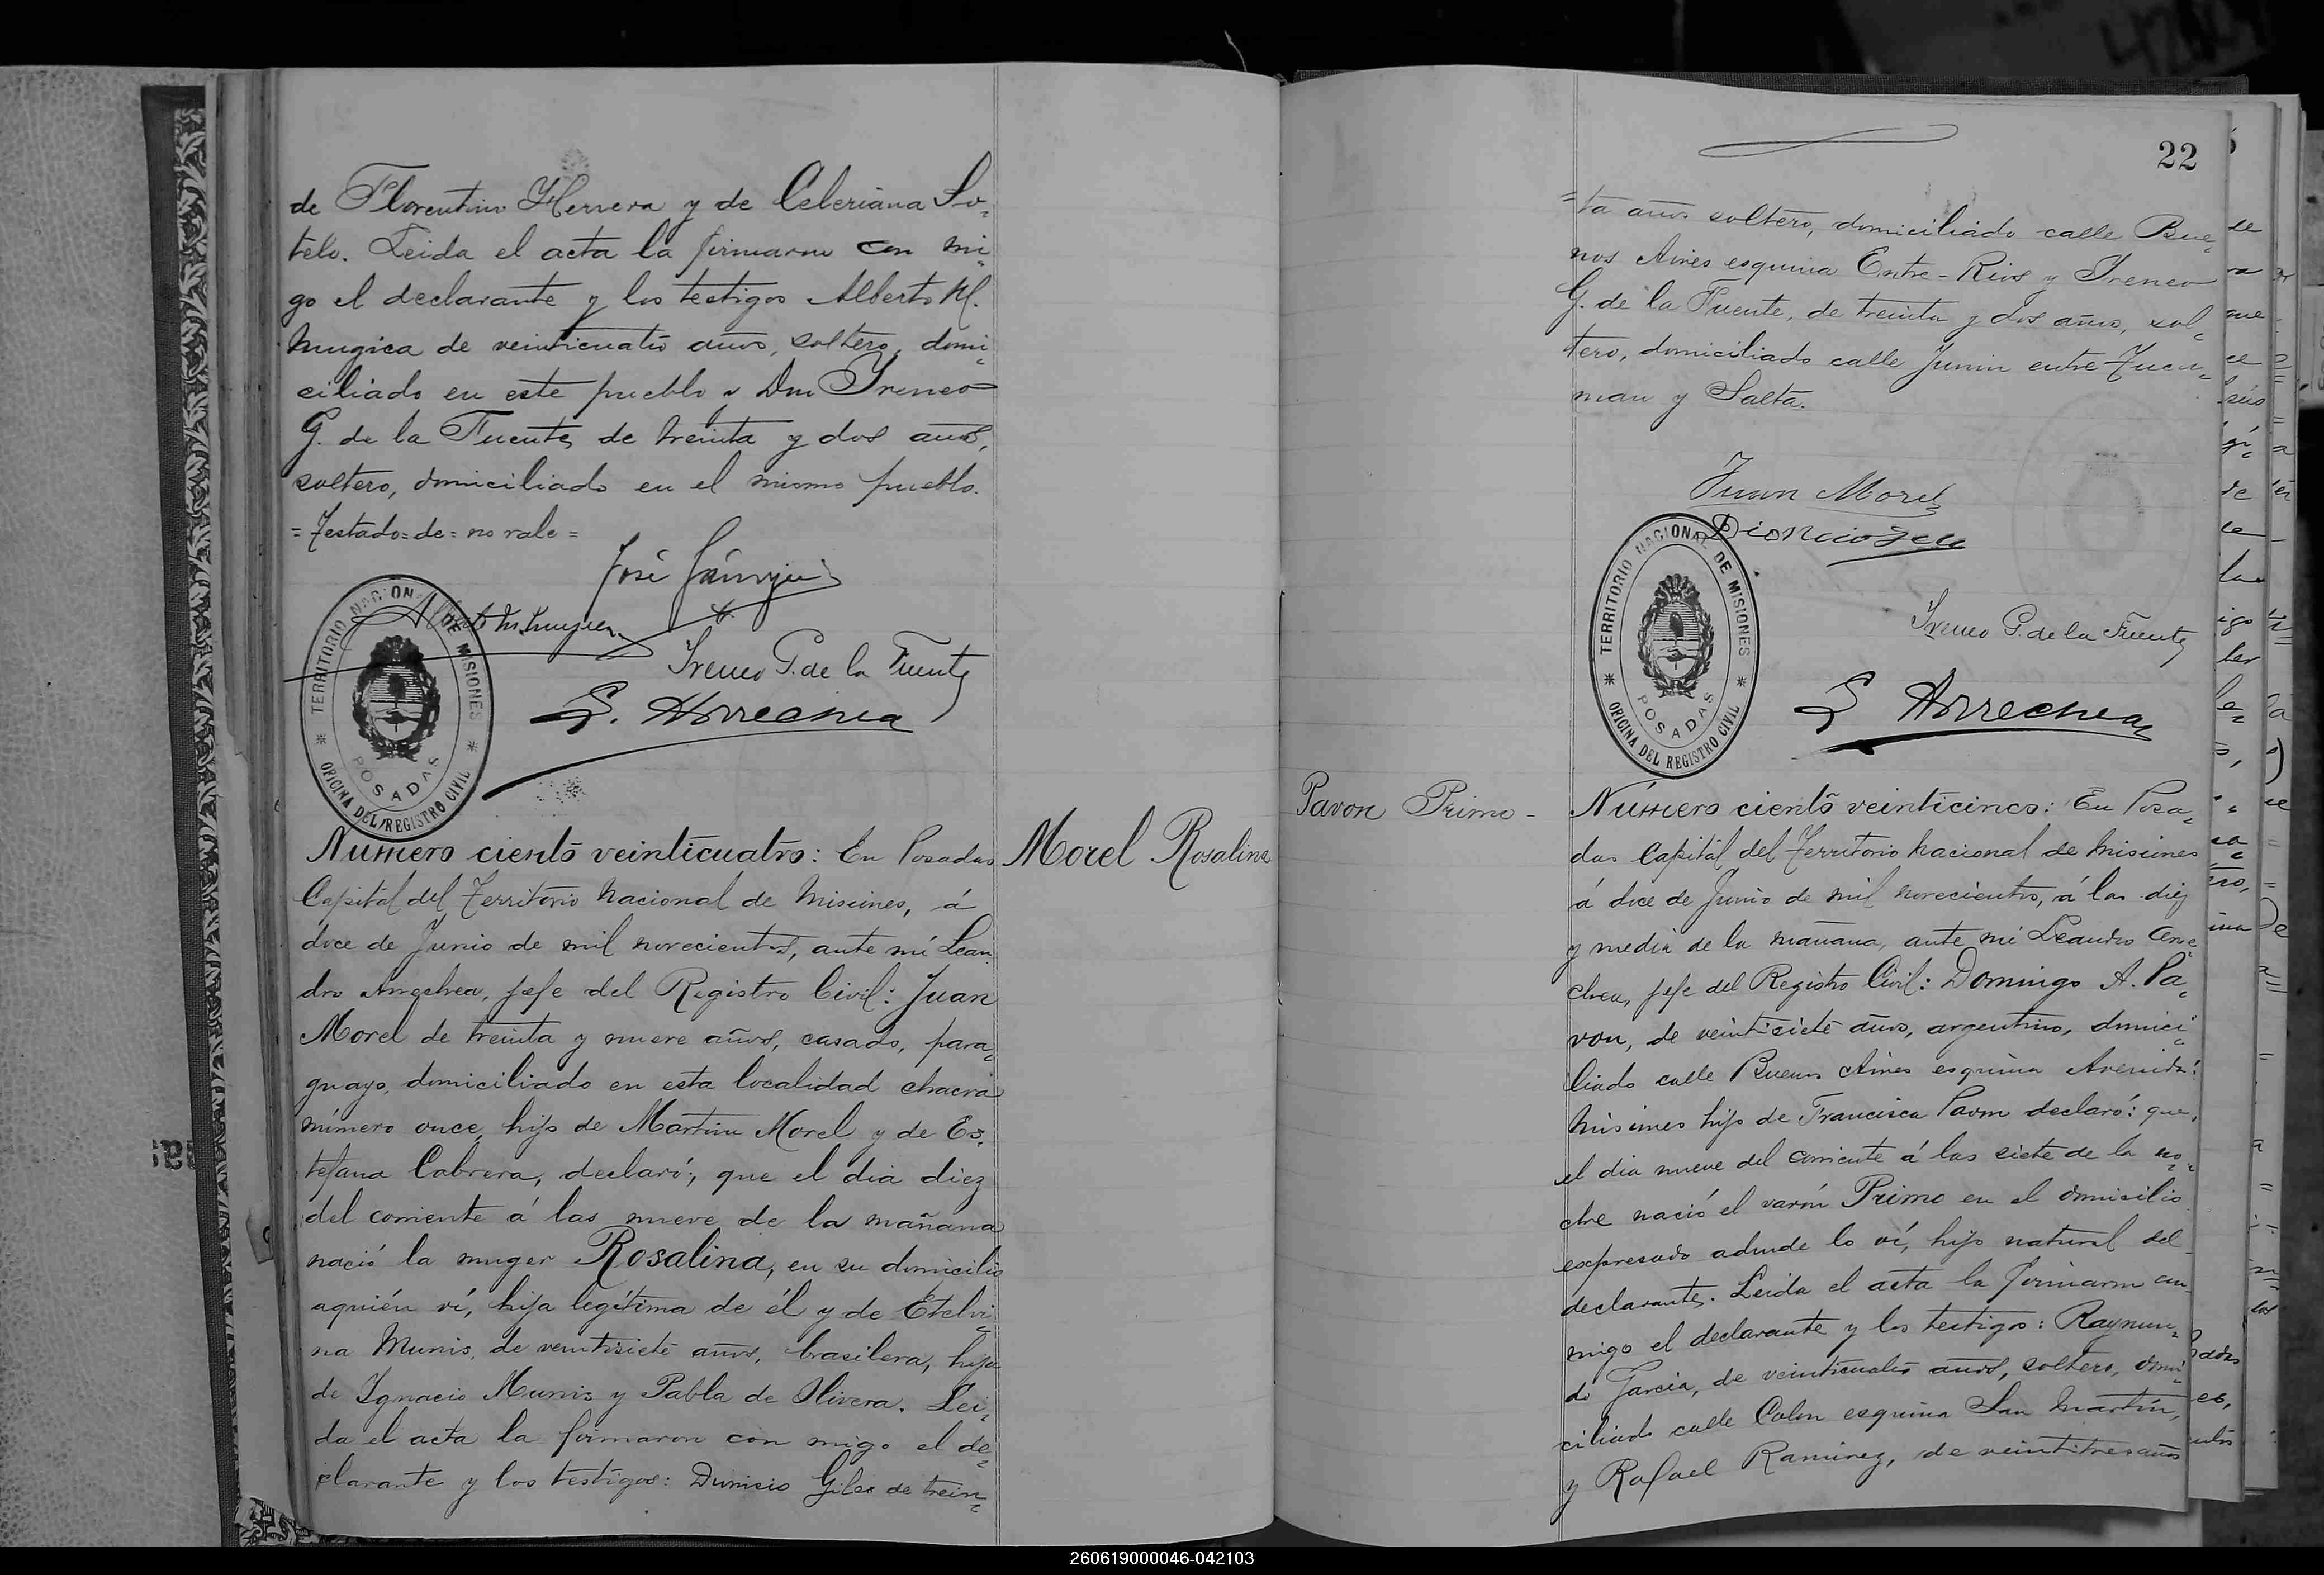 de Florentino Herrera y de Celeriana So-
telo. Leida el acta la firmaron con mi-
go el declarante y los testigos Alberto M.
Mugica de veinticuatro años, soltero, domi-
ciliado en este pueblo y Don Ireneo
G. de la Fuente, de treinta y dos años,
soltero, domiciliado en el mismo pueblo.
=Testado=de=no vale=
José
Ireneo G. de la Fuente
L. Arrechea
TERRITORIO NACIONAL DE MISIONES
POSADAS
OFICINA DEL REGISTRO CIVIL
Número ciento veinticuatro: En Posadas
Morel Rosalina
Capital del Territorio Nacional de Misiones, á
doce de Junio de mil novecientos, ante mí Lean
dro Arrechea, Jefe del Registro Civil: Juan
Morel de treinta y nueve años, casado, para-
guayo, domiciliado en esta localidad chacra
número once, hijo de Martin Morel y de Es-
tefana Cabrera, declaró; que el dia diez
del corriente á las nueve de la mañana
nació la muger Rosalina, en su domicilio
aquién ví, hija legítima de él y de Etelvi-
na Munis, de veintisiete años, brasilera, hija
de Ignacio Munis y Pabla de Olivera. Lei-
da el acta la firmaron con migo el de-
clarante y los testigos: Dionisio Giles de trein-
22
=ta años soltero, domiciliado calle Bue-
nos Aires esquina Entre-Rios y Ireneo
G. de la Fuente, de treinta y dos años, sol-
tero, domiciliado calle Junin entre Tucu-
man y Salta.
Juan Morel
Ireneo G. de la Fuente
L Arrechea
TERRITORIO NACIONAL DE MISIONES
POSADAS
OFICINA DEL REGISTRO CIVIL
Pavon Primo-
Número ciento veinticinco: En Posa-
das Capital del Territorio Nacional de Misiones
á doce de Junio de mil novecientos, á las diez
y media de la mañana, ante mi Leandro Arre
chea, Jefe del Registro Civil: Domingo A. Pa-
von, de veintisiete años, argentino, domici-
liado calle Buenos Aires esquina Avenida
Misiones hijo de Francisca Pavon declaró: que,
el dia nueve del corriente á las siete de la no-
che nació el varón Primo en el domicilio
expresado adonde lo ví, hijo natural del
declarante. Leida el acta la firmaron con
migo el declarante y los testigos: Raymun-
do Garcia, de veinticuatro años, soltero, domi-
ciliado calle Colon esquina San Martin,
y Rafael Ramirez, de veintitres años
260619000046-042103